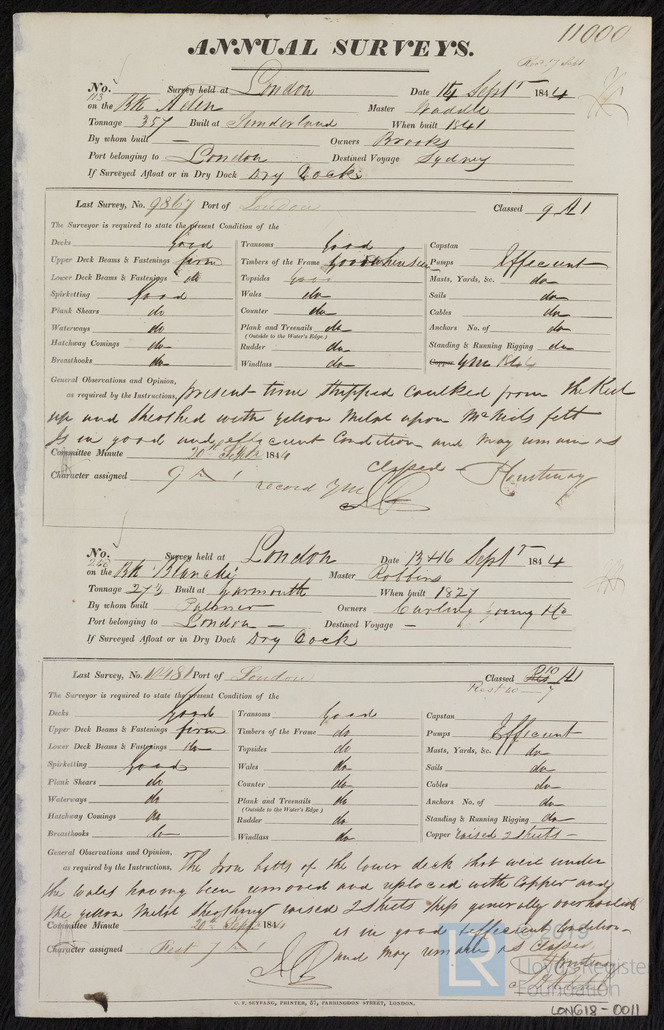 11000
ANNUAL SURVEYS.
Rec 17 Sept
No. 113 Survey held at London Date 14 Septr 1844
on the Bk Aden Master Waddle
Tonnage 357 Built at Sunderland When built 1841
By whom built — Owners Brooks
Port belonging to London Destined Voyage Sydney
If Surveyed Afloat or in Dry Dock Dry Dock
Last Survey, No. 9867 Port of London Classed 9 A1
The Surveyor is required to state the present Condition of the
Decks Good Transoms Good Capstan
Upper Deck Beams & Fastenings firm Timbers of the Frame Good Pumps Efficient
Lower Deck Beams & Fastenings do Topsides Good Masts, Yards, &c. do
Spirketting Good Wales do Sails do
Plank Shears do Counter do Cables do
Waterways do Plank and Treenails do Anchors No. of do
(Outside to the Water's Edge.)
Hatchway Comings do Rudder do Standing & Running Rigging do
Breasthooks do Windlass do Copper YM 1844
General Observations and Opinion,
as required by the Instructions, present time stripped caulked from the Keel
up and sheathed with yellow Metal upon McNeils felt
Is in good and efficient Condition and may remain as
Committee Minute 20th Septr 1844 Classed
Character assigned 9 A 1
record YM
No. 268 Survey held at London Date 13 & 16 Septr 1844
on the Bk Blanche Master Robbins
Tonnage 273 Built at Yarmouth When built 1827
By whom built Palmer Owners Curling Young & Co
Port belonging to London — Destined Voyage —
If Surveyed Afloat or in Dry Dock Dry Dock
Last Survey, No. Port of London Classed A1
The Surveyor is required to state the present Condition of the
Decks Good Transoms Good Capstan
Upper Deck Beams & Fastenings firm Timbers of the Frame do Pumps Efficient
Lower Deck Beams & Fastenings do Topsides do Masts, Yards, &c. do
Spirketting Good Wales do Sails do
Plank Shears do Counter do Cables do
Waterways do Plank and Treenails do Anchors No. of do
(Outside to the Water's Edge.)
Hatchway Comings do Rudder do Standing & Running Rigging do
Breasthooks do Windlass do Copper raised 2 Sheets —
General Observations and Opinion,
as required by the Instructions, The Iron bolts of the lower deck that were under
the Wales having been removed and replaced with Copper and
the yellow Metal Sheathing raised 2 Sheets Ship generally overhauled
Committee Minute 20th Septr 1844 is in good & efficient Condition
Character assigned Rest 7 A 1 and may remain as Classed
© 2019
LR
Lloyd's Register
Foundation
C. F. SEYFANG, PRINTER, 57, FARRINGDON STREET, LONDON.
LON618-0011